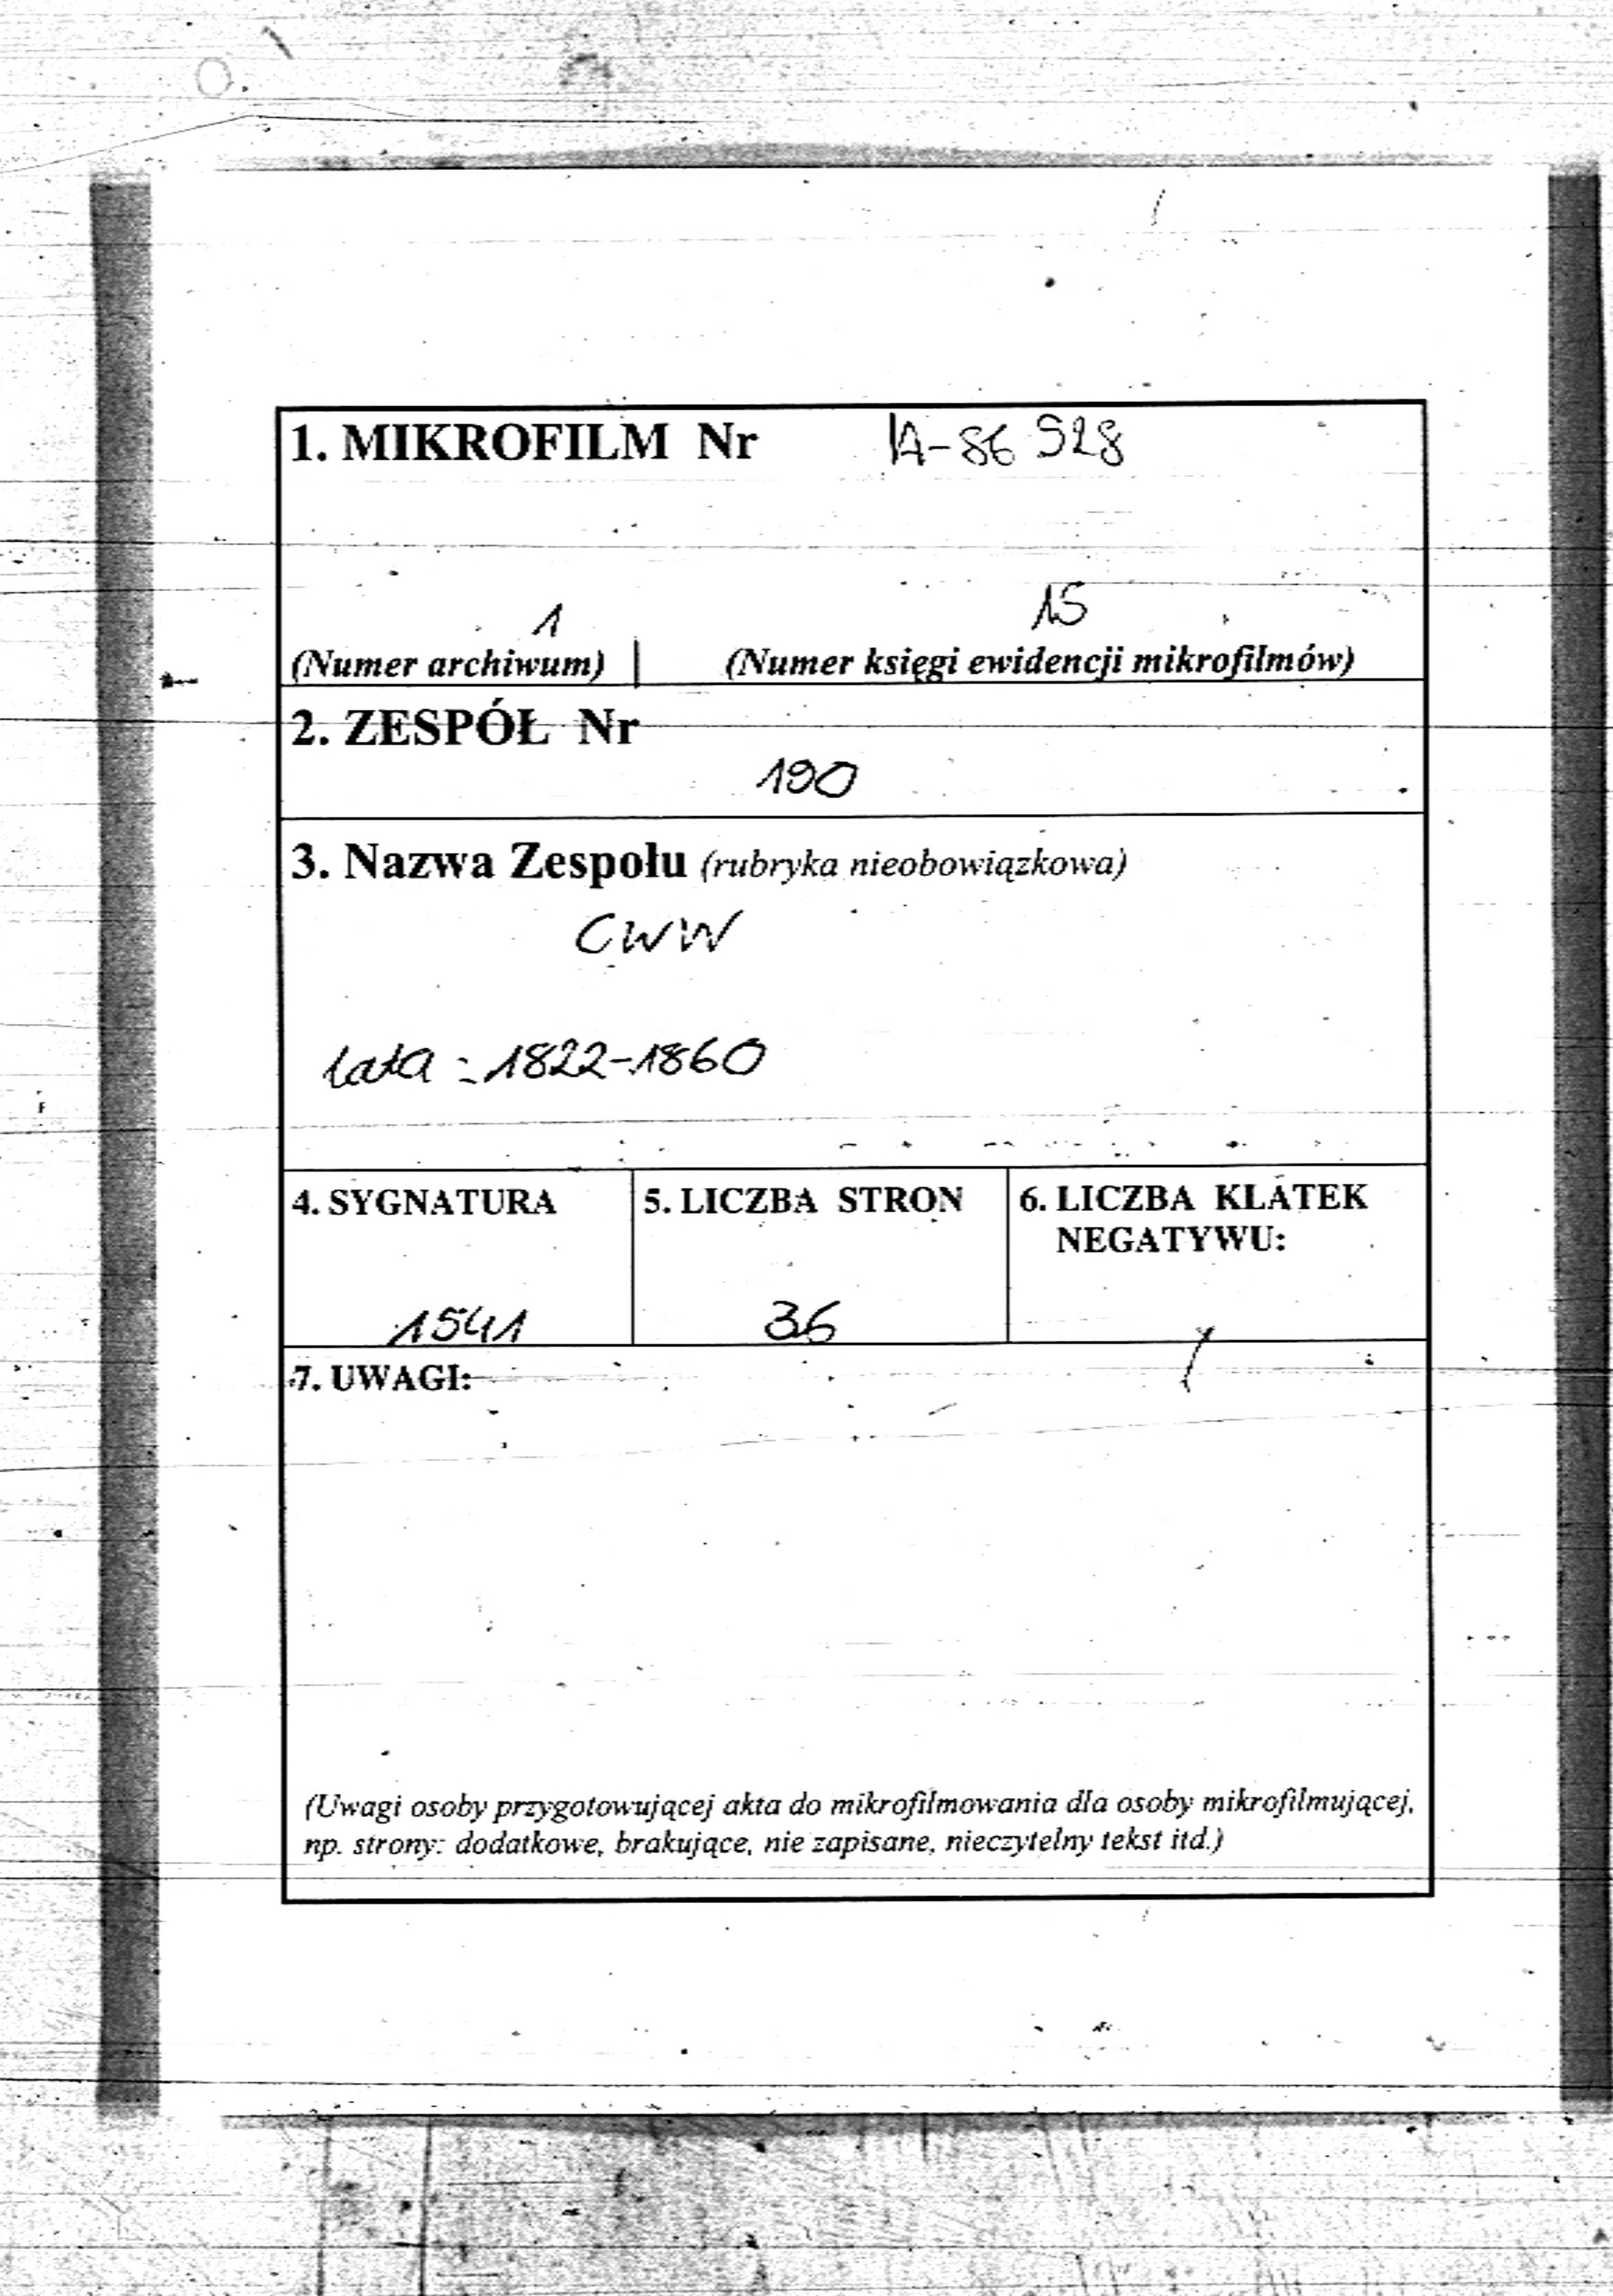 1. MIKROFILM Nr A-86 928
1 15
(Numer archiwum) (Numer księgi ewidencji mikrofilmów)
2. ZESPÓŁ Nr
190
3. Nazwa Zespołu (rubryka nieobowiązkowa)
CWW
lata : 1822-1860
4. SYGNATURA 5. LICZBA STRON 6. LICZBA KLATEK
NEGATYWU:
1541 36
7. UWAGI:
(Uwagi osoby przygotowującej akta do mikrofilmowania dla osoby mikrofilmującej,
np. strony: dodatkowe, brakujące, nie zapisane, nieczytelny tekst itd.)